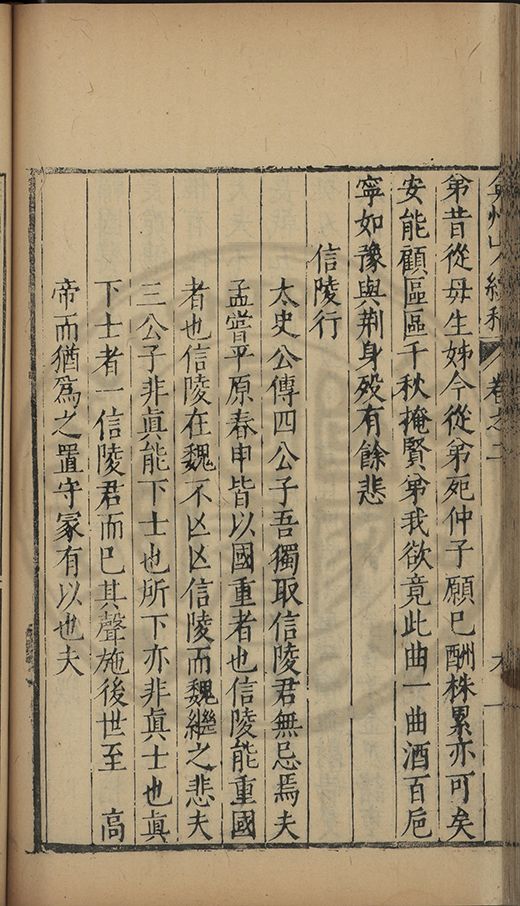 弇州山人續稿 卷之二
弟昔從母生姊今從弟死仲子願已酬株累亦可矣
安能顧區區千秋掩賢弟我欲竟此曲一曲酒百巵
寧如豫與荆身殁有餘悲
信陵行
太史公傳四公子吾獨取信陵君無忌焉夫
孟嘗平原春申皆以國重者也信陵能重國
者也信陵在魏不凶凶信陵而魏繼之悲夫
三公子非眞能下士也所下亦非眞士也眞
下士者一信陵君而已其聲施後世至 高
帝而猶爲之置守冢有以也夫